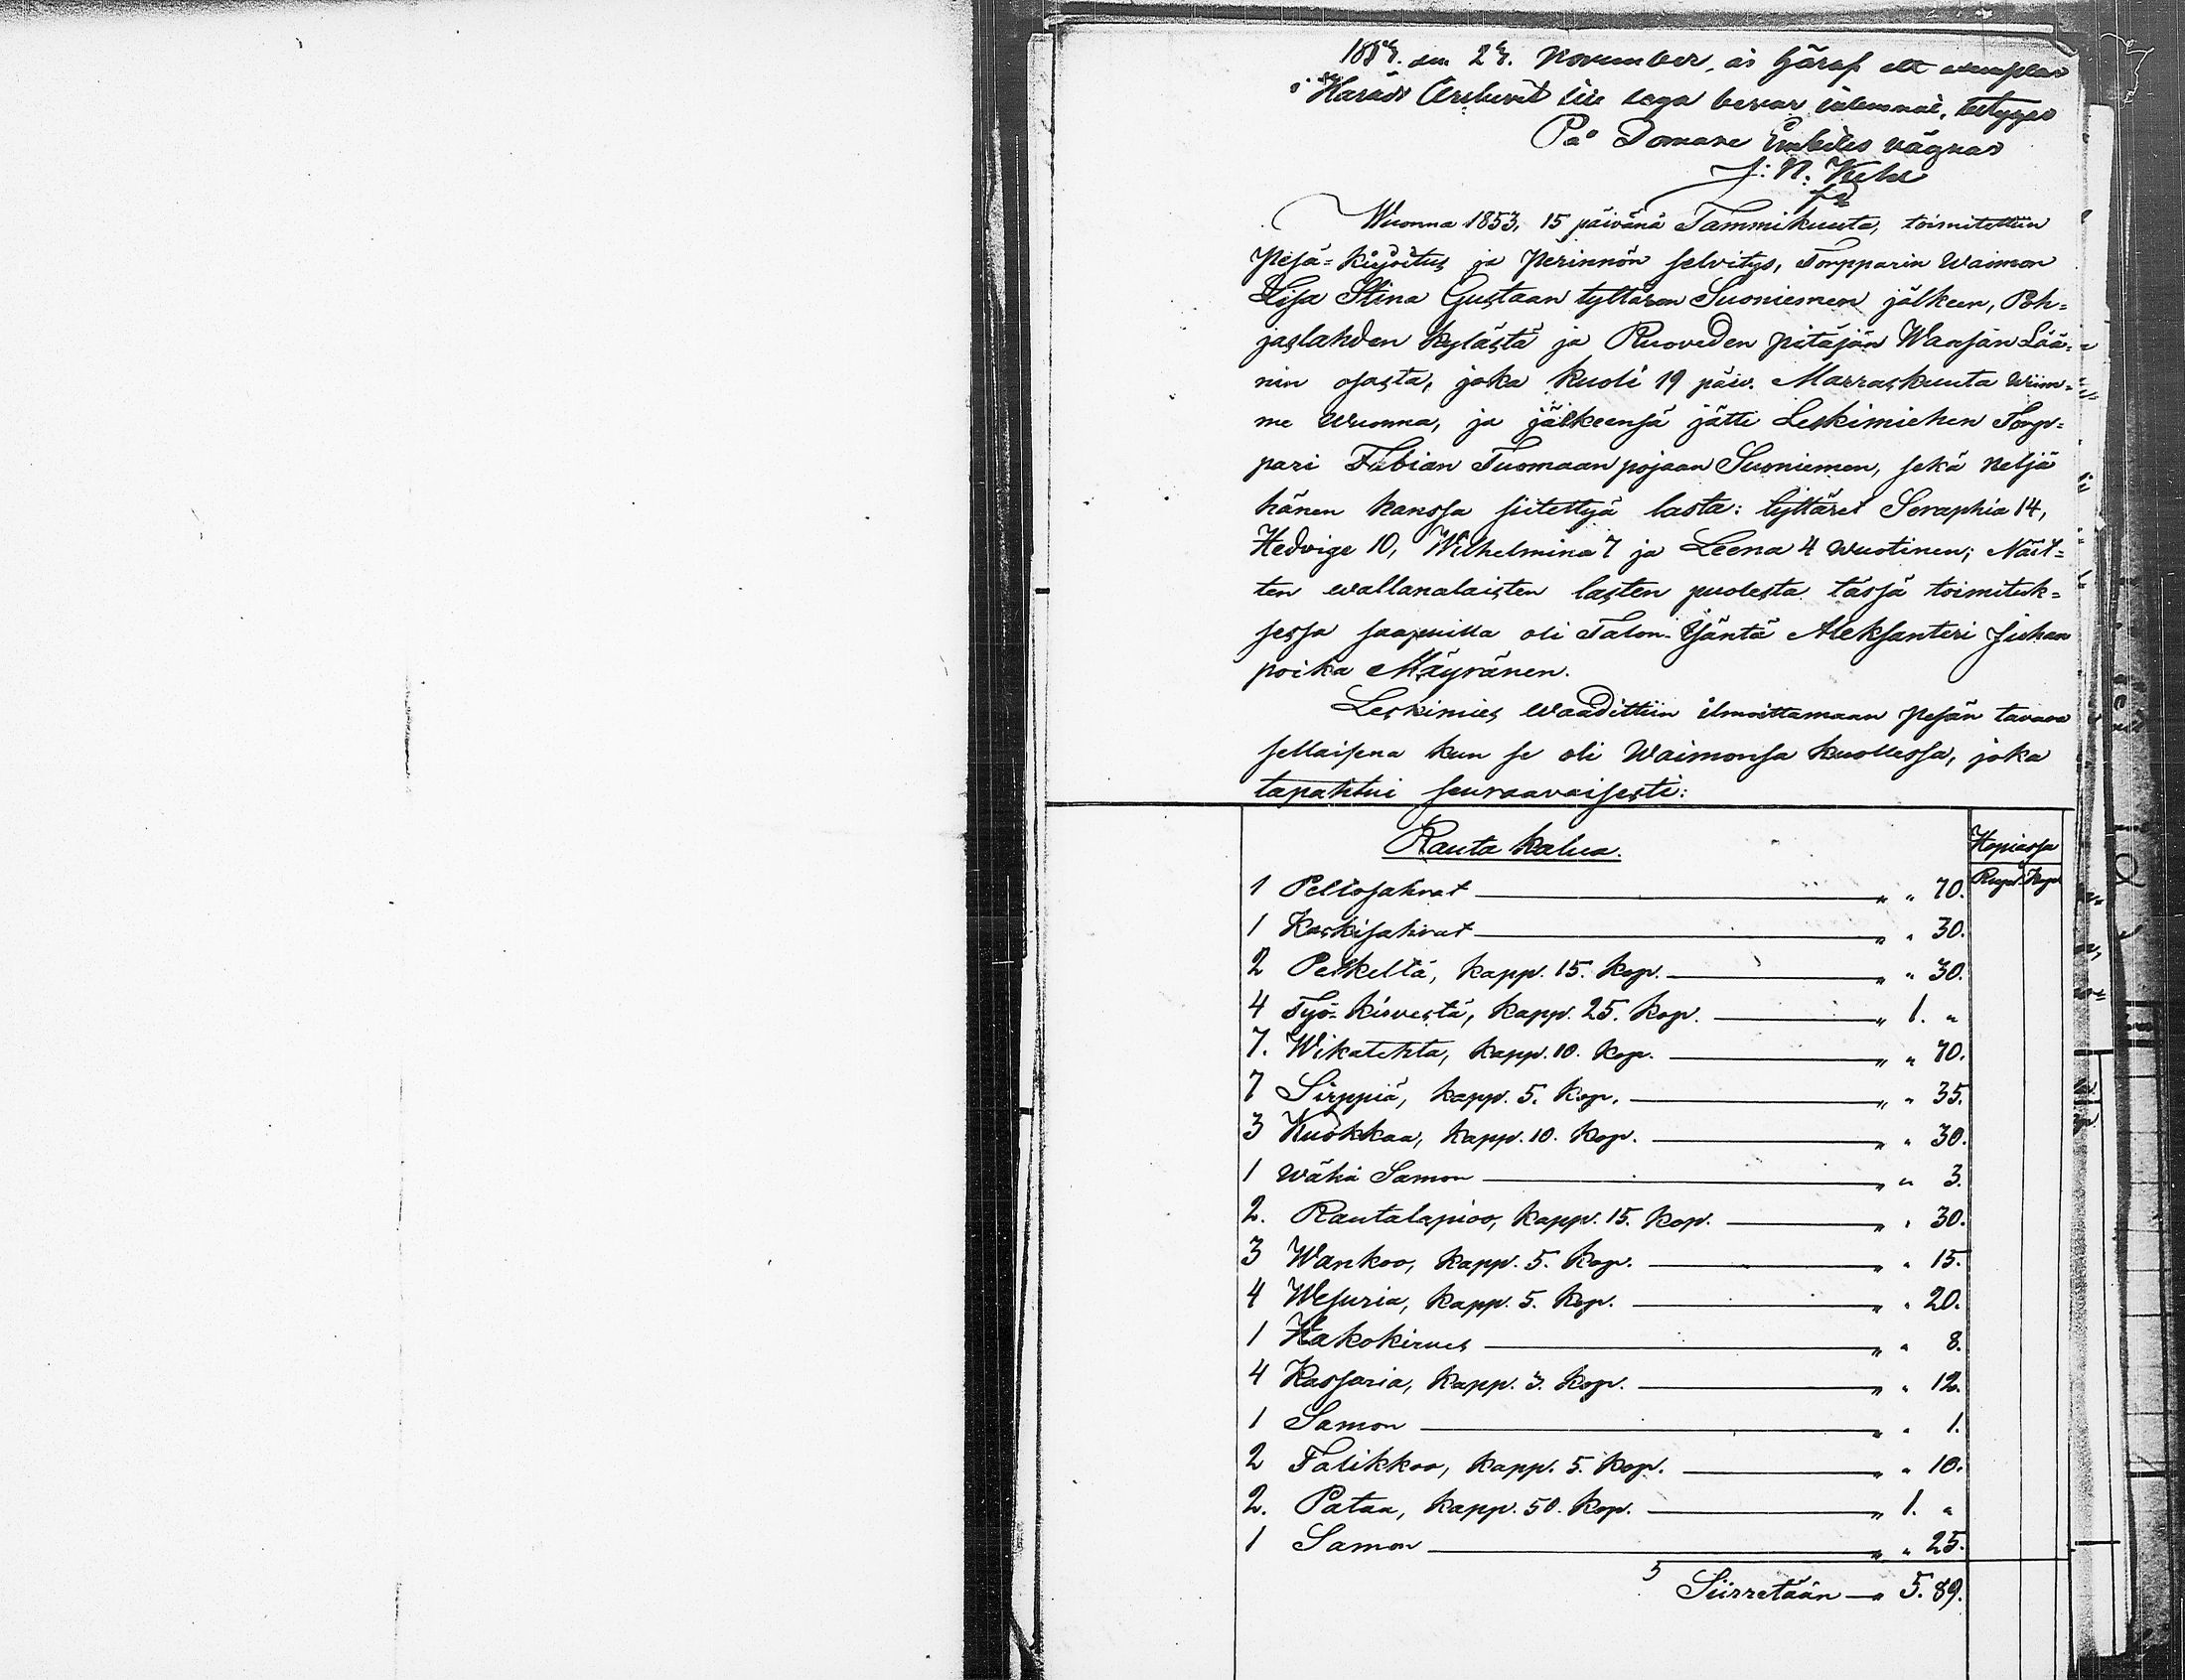 November, är häraf ett exemplar
i Härads Archivet till laga bevar inlemnat, betygas
På Domare Embetes vägnar
Wuonna 1853, 15 päivänä Tammikuuta, toimitettiin
Pesä-kirjoitus ja Perinnön selvitys, Torpparin Waimon
Lisa Stina Gustaan tyttären Suoniemen jälkeen, Poh-
jaslahden kylästä ja Ruoveden pitäjän Waasan Lää-
nin osasta, joka kuoli 19 päiv. Marraskuuta Wiim-
me Wuonna, ja jälkeensä jätti Leskimiehen Torp-
pari Fabian Tuomaan pojaan Suoniemen, sekä neljä
hänen kanssa siitettyä lasta: tyttäret Seraphia 14,
Hedvige 10, Wilhelmina 7 ja Leena 4 wuotinen; Näit-
ten wallanalaisten lasten puolesta tässä toimituk-
sessa saapuilla oli Talon-Isäntä Aleksanteri Juhan
poika Mäyränen.
Leskimies waadittiin ilmoittamaan Pesän tavara
sellaisena kun se oli Waimonsa kuollessa, joka
tapahtui seuraavaisesti:
Rauta kalua. Hopiassa
Rupl. Kop.
1 Peltosahrat — " " 70.
1 Kaskisahrat — " " 30.
2 Petkeltä, kapp. 15. kop. — " " 30.
4 Työ-kirvestä, kapp. 25. kop. — " 1. "
7. Wikatehta, kapp. 10. kop. — " " 70.
7 Sirppiä, kapp. 5. kop. — " " 35.
3 Kuokkaa, kapp. 10. kop. — " " 30.
1 Wähä Samon — " " 3.
2. Rautalapioo, kapp. 15. kop. — " " 30.
3 Wankoo, kapp. 5. kop. — " " 15.
4 Wesuria, kapp. 5. kop. — " " 20.
1 Hakokirves — " " 8.
4 Kassaria, kapp. 3. kop. — " " 12.
1 Samon — " " 1.
2 Talikkoo, kapp. 5. kop. — " " 10.
2. Pataa, kapp. 50. kop. — " 1. "
1 Samon — " " 25.
5 Siirretään — " 5. 89.